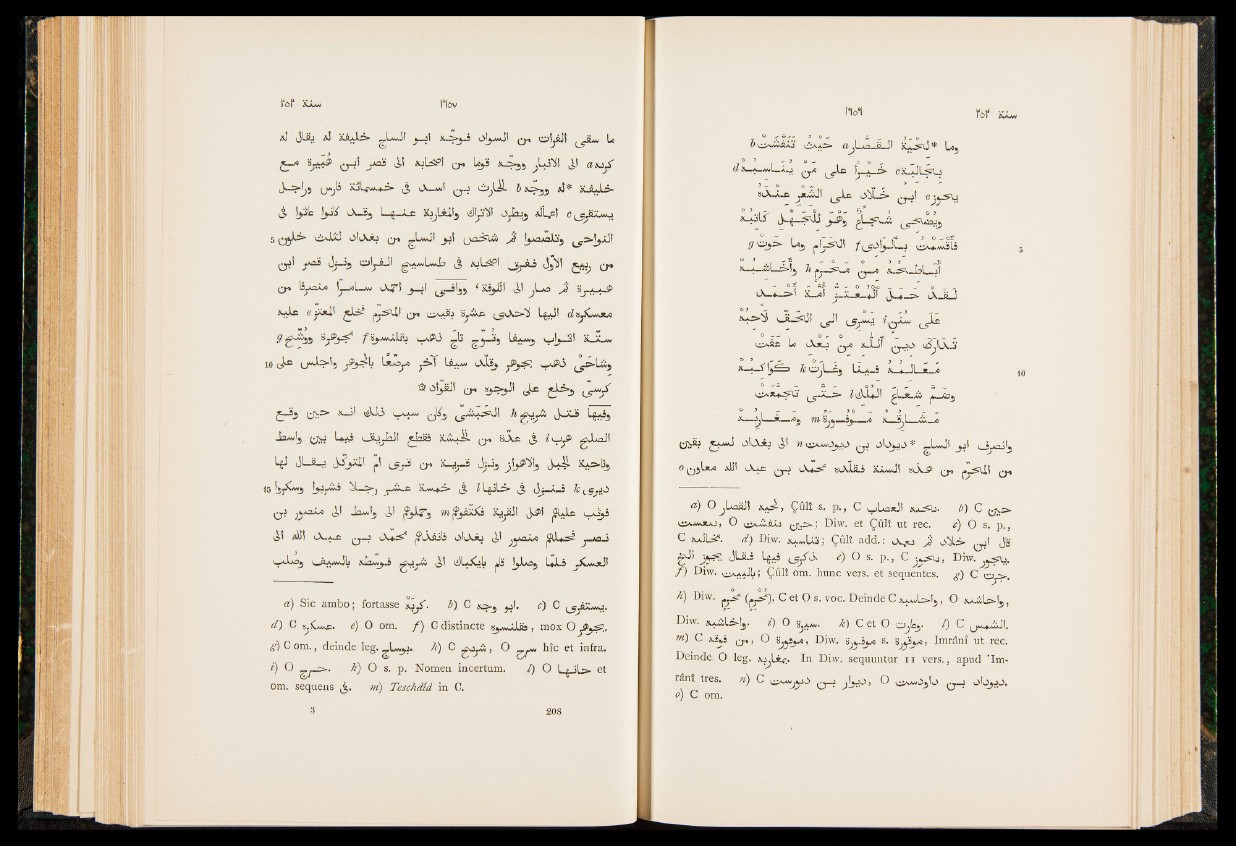 سنة ٢٥٢ ١٦٥٧
ما سقى الفرات من السواد فوجّه ابو الساج خليفة له يقال له
كربه a الى الانبار ووجّه قوما من اصحابه الى قصر ابن هبيرة مع
خليفة *له ووجّه b الحارث بن اسد فى خمسمائة فارس وراجل
يستقرى c اعماله ويطرد الاتراك والمغاربة عنها وقد كانوا عاثوا فى
5 النواحى وتلصّصوا ثم شخص ابو الساج من بغداد لثلث خلون
من ربيع الاوّل ففرق اصحابه فى طساسيج الفرات ونزل قصر ابن
هبيرة ثم صار الى الكوفة، ووافى ابو احمد سامرّا منصرفا من
معسكره d اليها لاحدى عشرة بقيت من المحرّم فخلع المعتزّ e عليه
ستّة اثواب وسيفا وتُوّج تاج ذهب بقلنسوة f مجوهرة ووُشّح g
10 وشاحَىْ ذهب بجوهر وقلّد سيفا آخر مرصّعا بالجوهر واجلس على
كرسىّ وخلع على الوجوه من القوّاد ۞
وفيها قتل شريح h الحبشىّ وكان سبب ذلك انه حين وقع
الصلح هرب i فى عدّة من الحبشة فقطع الطريق فيما بين واسط
وناحية الجبل والاهواز ونزل قرية من قرى امّ المتوكّل يقال لها
15 ديرى k فنزل فى خانها l فى خمسة عشر رجلا فشربوا وسكروا
فوثب عليهم اهل القرية فكتفوهم m وحملوهم الى واسط الى منصور بن
نصر فحملهم منصور الى بغداد فانفذهم محمّد بن عبد الله الى
العسكر فلمّا وصلوا قام بايكباك الى شريح فوسّطه بالسيف وصلب
a) Sic ambo; fortasse كزبة. b) C ابو وجه. c) C يستقرى.
d) C عسكره. e) O om. f) C distincte بقلنسوه, mox O بجوهر.
g) C om., deinde leg. بوساج. h) C شريح, O سرح hîc et infra.
i) O خرج. k) O s. p. Nomen incertum. l) O خانها et
om. sequens فى. m) Teschdîd in C.
3 208
١٦٥٩ سنة ٢٥٢
وما *لِحْيَةُ القَصّار a حَيْثُ تَنَفَّشَتْ b
بِجَالِبَةٍ c خَيْرًا على مَنْ يُناسِبُهْ d
يجوز e ابن خلّاد على الشِّعْر عِنْدَهْ
ويُضْحِى شُجاعٌ وَهْوَ لِلْجَهْلِ كاتِبُهْ
5 فَأَقْسَمْتُ بالوادى f الحرامِ وما حَوَتْ g
أباطِحُهُ مِنْ مَحْرَمٍ h وأَخاشِبُهْ
لَقَدْ حَمَلَ المُعْتَزُّ أُمّةَ أحْمَدٍ
عَلَى سَنَنٍ i يَسْرِى الى الحَقِّ لاحِبُهْ
تَدارَكَ دِينَ اللّه مِنْ بَعْدِ ما عَفَتْ
10 مَعالِمُهُ فينا وغارَتْ k كَواكِبُهْ
وضَمَّ شَعاعَ المُلْكِ l حَتَّى تَجَمَّعَتْ
مَشارِقُهُ مَوْفُورَةً m ومَغارِبُهْ
وانصرف ابو الساج *ديوداد بن ديودست n الى بغداد لسبع بقين
من المحرّم من هذه السنة فقلّده محمّد بن عبد الله معاون o
a) O لحيه القصار, Çûlî s. p., C بحبه العصاب. b) C حين
تنفست, O حين تنفشت; Diw. et Çûlî ut rec. c) O s. p.,
C بحالته. d) Diw. يناسبه; Çûlî add.: قال ابن خلاد ثم بعد
ذكرى فيها فقال يجوز الخ. e) O s. p., C يجوز, Diw. يجوز.
f) Diw. بالبيت; Çûlî om. hunc vers. et sequentes. g) C جرت.
h) Diw. محرم, C et O s. voc. Deinde C واحاسبه, O واخاشبه,
Diw. واخاشبه. i) O سير. k) C et O وغارت. l) C الشمس.
m) C من فوقه, O موفوره, Diw. موفورة s. موفورة, Imrânî ut rec.
Deinde O leg. مغاربه. In Diw. sequuntur 11 vers., apud 'Im-
rânî tres. n) C ديوار بن ديورست, O ديوداد بن داودست.
o) C om.